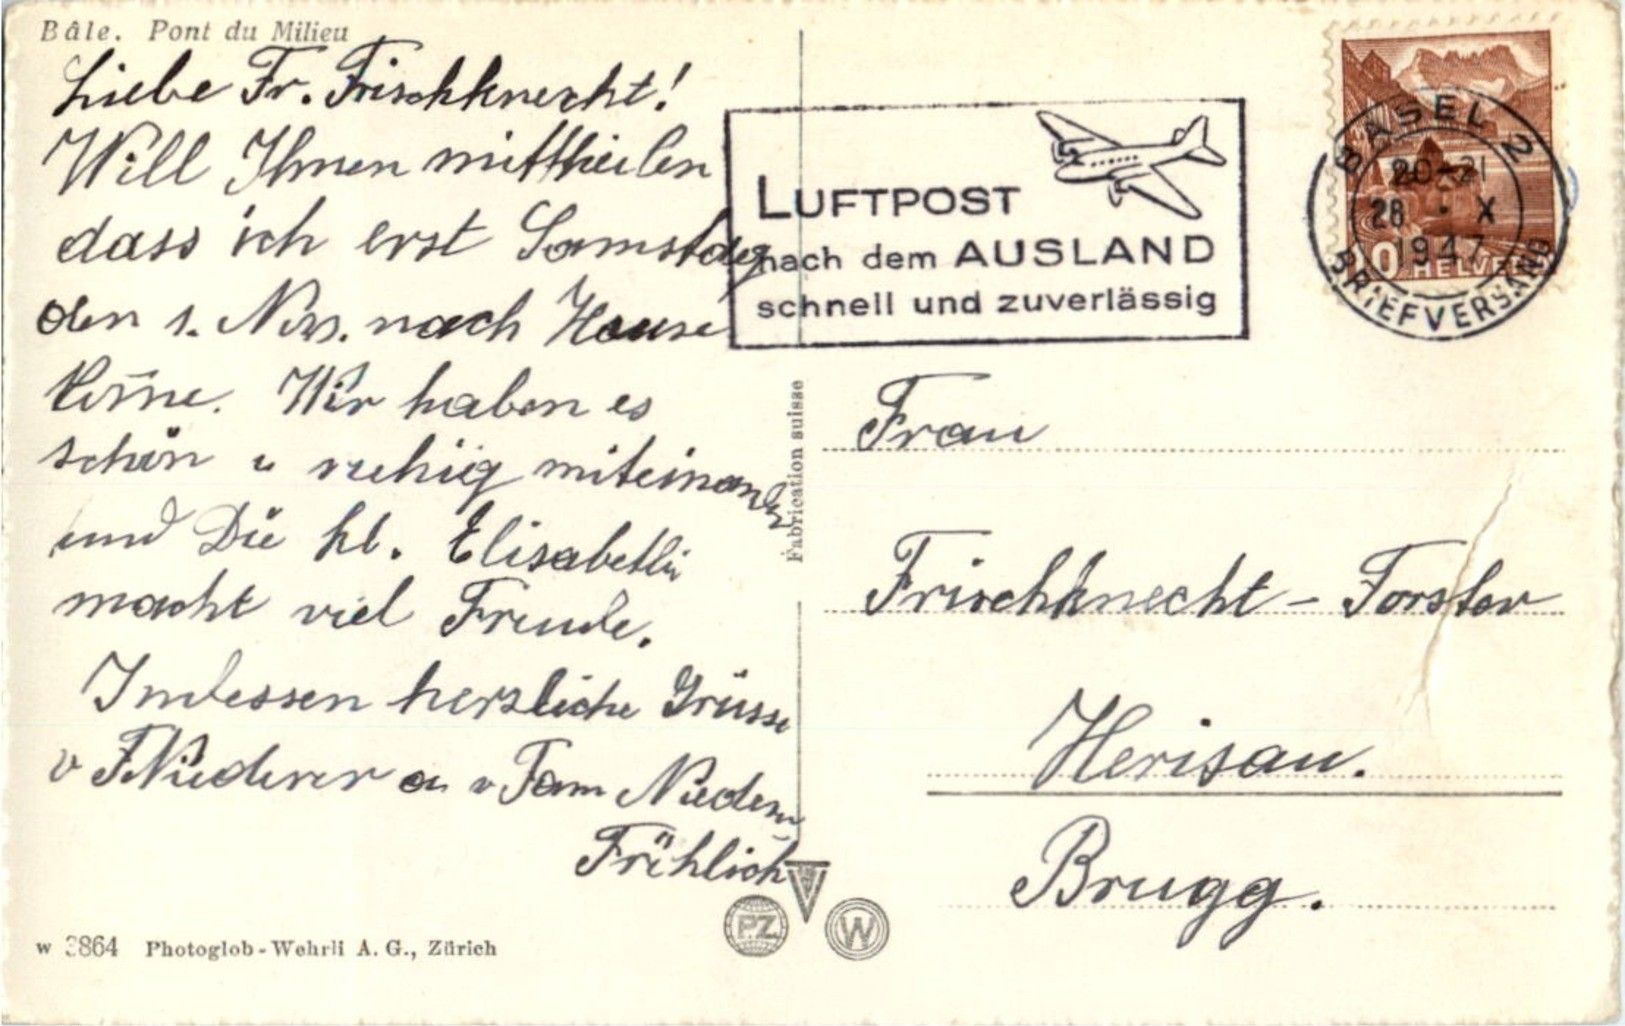 Bâle. Pont du Milieu
Liebe Fr. Frischknecht!
Will Ihnen mittheilen
dass ich erst Samstag
den 1. Nov. nach Hause
kom̄e. Wir haben es
schön u ruhig miteinander
und Die kl. Elisabethli
macht viel Freude.
Indessen herzliche Grüsse
v F. Niederer u v Fam Niederer
Fröhlich
w 3864 Photoglob-Wehrli A. G., Zürich
Fabrication suisse
P.Z.
W
LUFTPOST
nach dem AUSLAND
schnell und zuverlässig
BASEL 2
20-21
28 · X
1947
BRIEFVERSAND
HELVE
Frau
Frischknecht - Forster
Herisau.
Brugg.